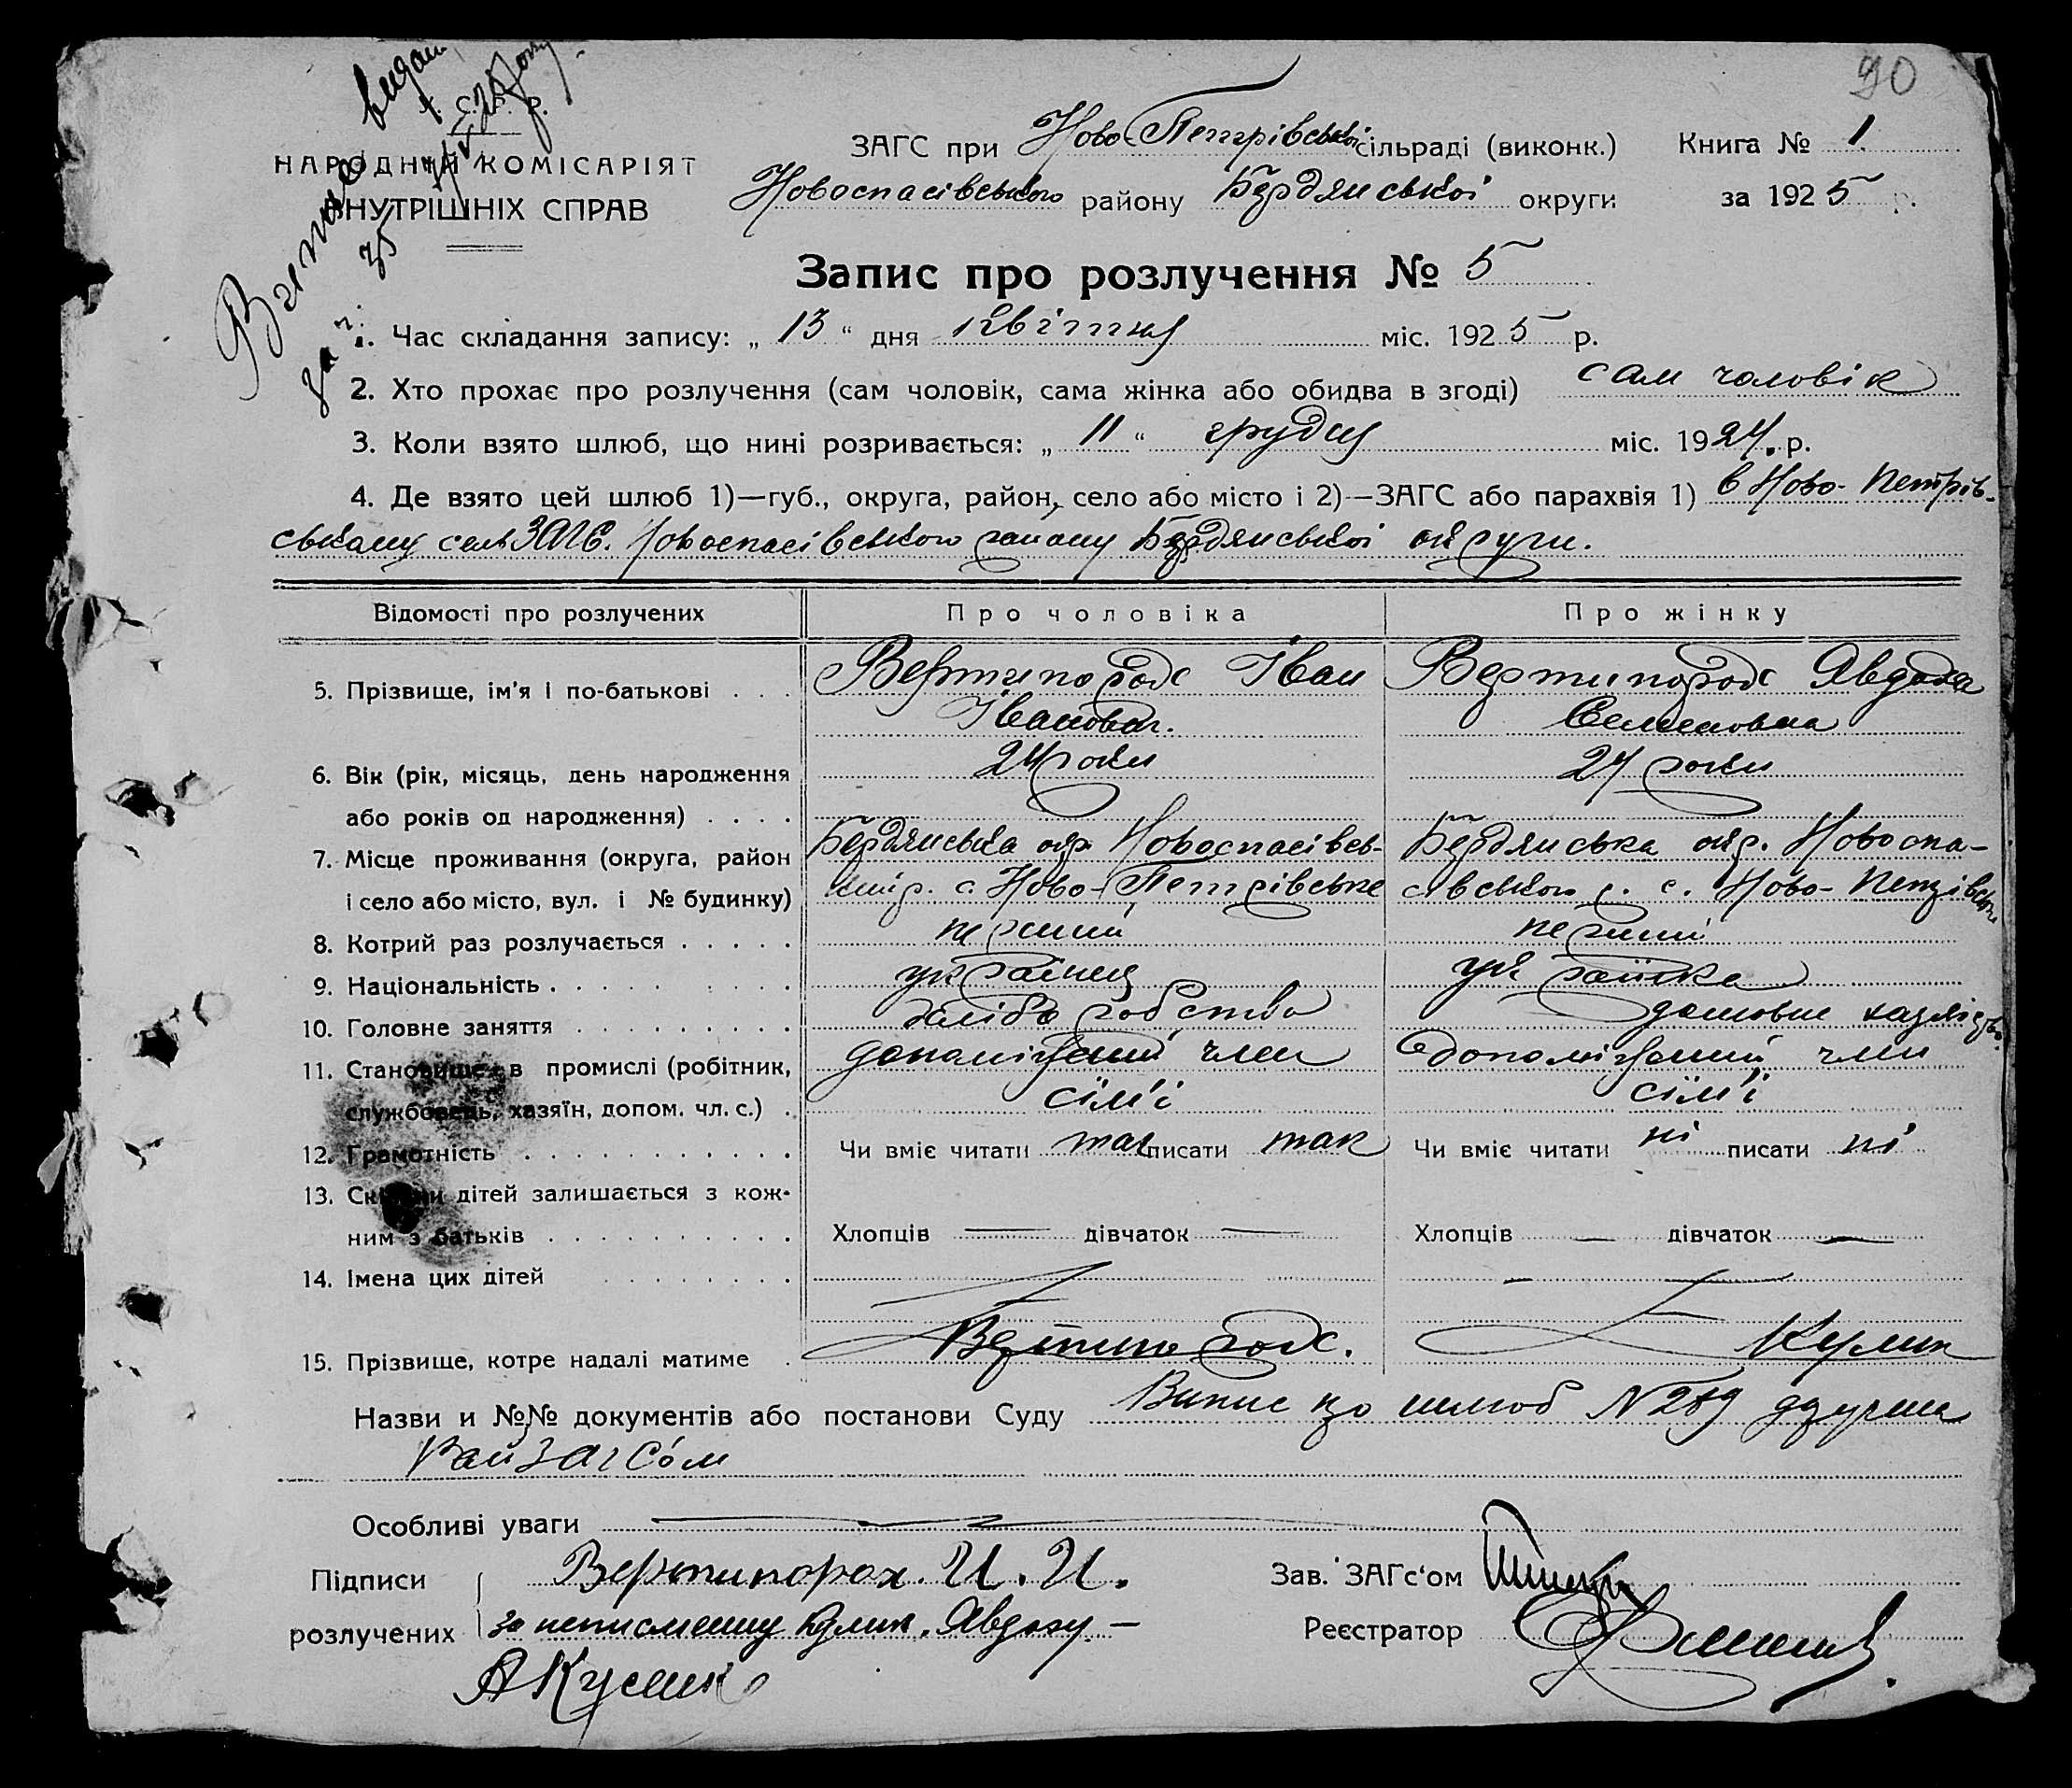 90
Витяг видан
за ч. 35
У. С. Р. Р.
НАРОДНИЙ КОМІСАРІЯТ
ВНУТРІШНІХ СПРАВ
ЗАГС при Ново-Петрівській сільраді (виконк.) Книга № 1
Новоспасівського району Бердянської округи за 1925 р.
Запис про розлучення № 5
1. Час складання запису: „ 13 “ дня квітня міс. 1925 р.
2. Хто прохає про розлучення (сам чоловік, сама жінка або обидва в згоді) сам чоловік
3. Коли взято шлюб, що нині розривається: „ 11 “ грудня міс. 1924 р.
4. Де взято цей шлюб 1)—губ., округа, район, село або місто і 2)—ЗАГС або парахвія 1) в Ново-Петрів-
ському сель ЗАГС. Новоспасівського району Бердянської округи.
Відомості про розлучених Про чоловіка Про жінку
5. Прізвище, ім'я і по-батькові . . . Вертипорох Іван Вертипорох Явдоха
Іванович. Семеновна
6. Вік (рік, місяць, день народження 24 роки 24 роки
або років од народження) . . . .
7. Місце проживання (округа, район Бердянська окр. Новоспасівсь- Бердянська окр. Новоспа-
і село або місто, вул. і № будинку) кий р. с. Ново-Петрівське сівського р. с. Ново-Петрівське
8. Котрий раз розлучається . . . . . перший перший
9. Національність . . . . українець українка
10. Головне заняття . . . . . . . . . хліборобство домовне хазяйство
11. Становище в промислі (робітник, допоміжний член допоміжний член
службовець, хазяїн, допом. чл. с.) . сім'ї сім'ї
12. Грамотність . . . . . . . . . . . Чи вміє читати так писати так Чи вміє читати ні писати ні
13. Скільки дітей залишається з кож-
ним з батьків . . . . . . . . . . Хлопців — дівчаток — Хлопців — дівчаток —
14. Імена цих дітей . . . . . . . .
15. Прізвище, котре надалі матиме . Вертипорох. Кулик
Назви и №№ документів або постанови Суду Випис про шлюб № 289
РайЗАГСом
Особливі уваги —
Підписи Вертипорох. И. И. Зав. ЗАГс'ом
розлучених за неписменну Кулик. Явдоху — Реєстратор
А Кулик